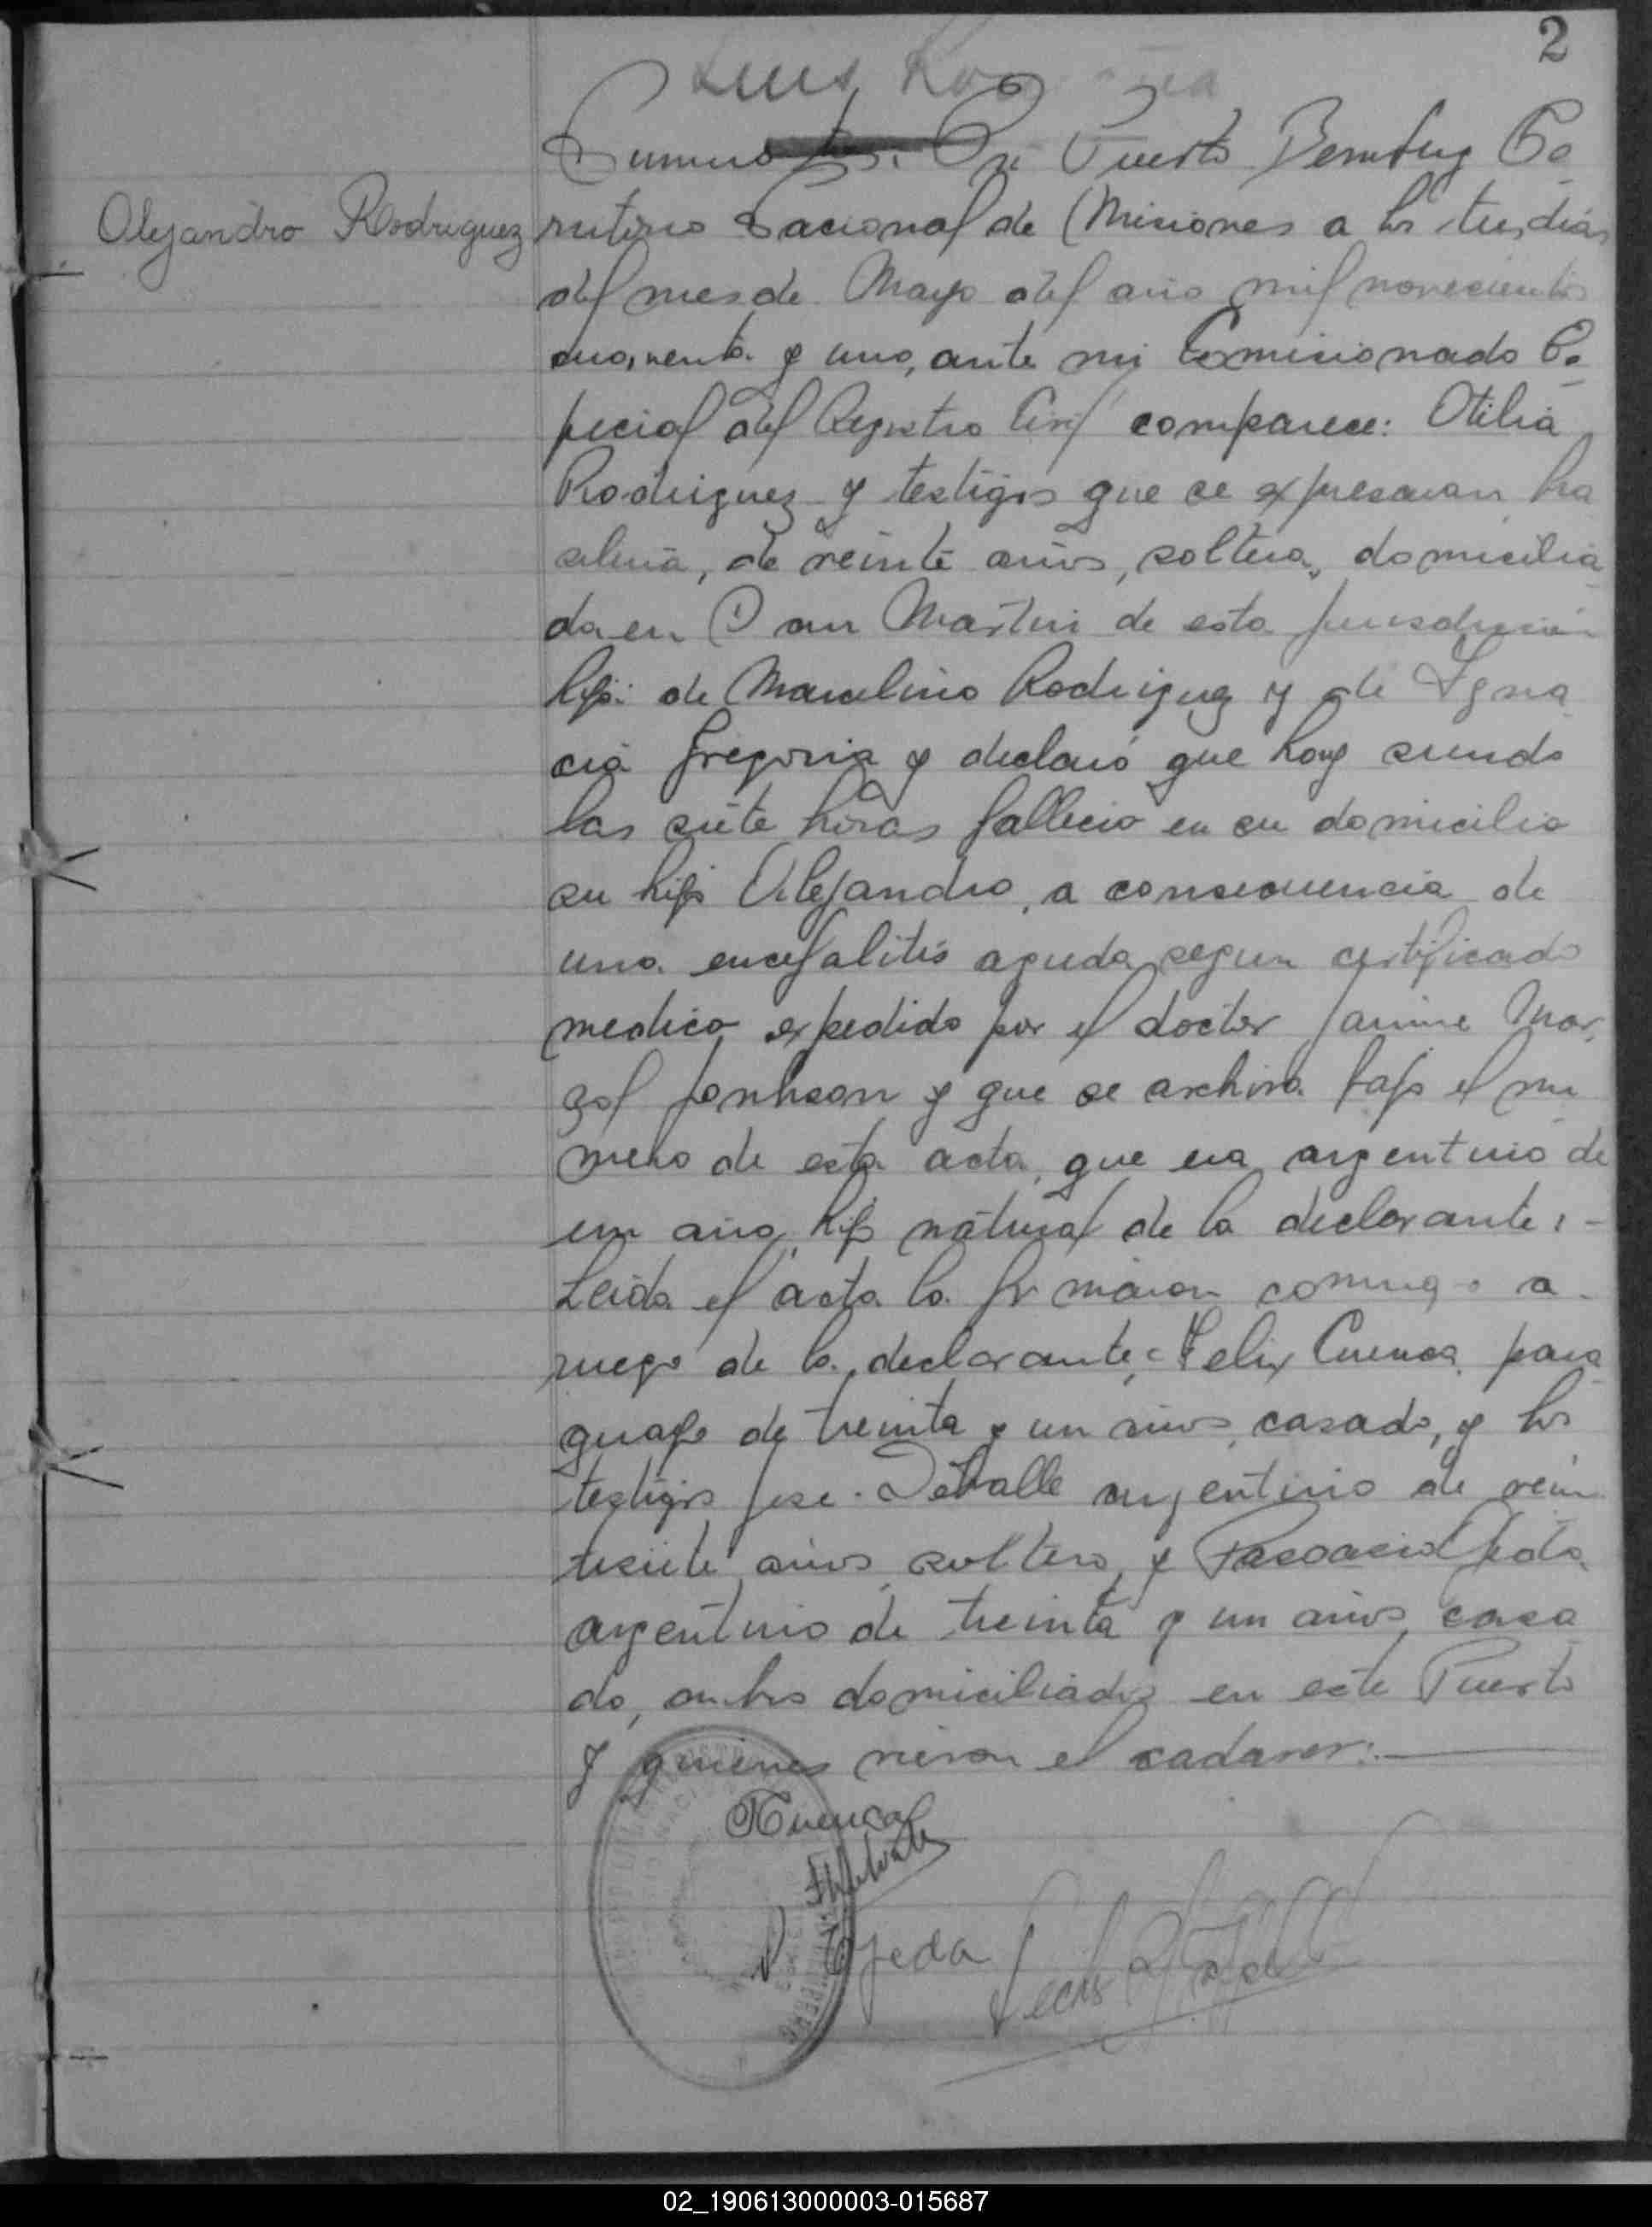 2
Luis
Numero En Puerto Bemberg Te
Alejandro Rodriguez
rritorio Nacional de Misiones a los tres dias
del mes de Mayo del año mil novecientos
cuarenta y uno, ante mi Comisionado Es
pecial del Registro Civil comparece: Otilia
Rodriguez y testigos que se expresaran bra
silera, de veinte años, soltera, domicilia
da en San Martin de esta jurisdiccion
hija de Marcelino Rodriguez y de Igna
cia Gregoria y declaró que hoy siendo
las siete horas fallecio en su domicilio
su hijo Alejandro, a consecuencia de
una encefalitis aguda segun certificado
medico expedido por el doctor Jaime Mar
gol Jonhson y que se archiva bajo el nu
mero de esta acta, que era argentino de
un año, hijo natural de la declarante. -
Leida el acta la firmaron conmigo a
ruego de la declarante, Felix Cuenca para
guayo de treinta y un años, casado, y los
testigos Jose Delvalle argentino de vein
tisiete años soltero, y Pascacio Ojeda
argentino de treinta y un años casa
do, ambos domiciliados en este Puerto
y quienes vieron el cadaver.
FCuenca
P. Ojeda
02_190613000003-015687